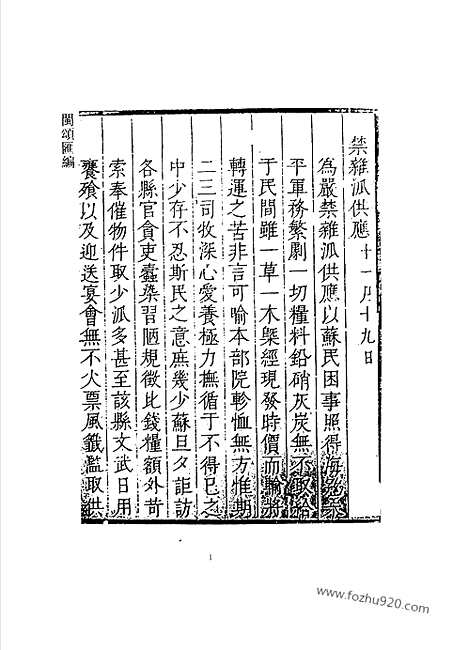 禁雜派供應十一月十九日
為嚴禁雜派供應以蘇民困事照得海
平軍務繁劇一切糧料鉛硝灰炭無不取給
于民間雖一草一木槩經現發時價而輸將
轉運之苦非言可喻本部院軫恤無方惟期
二三司牧深心愛養極力撫循于不得已之
中少存不忍斯民之意庶幾少蘇旦夕詎訪
各縣官貪吏蠹染習陋規徵比錢糧額外苛
索奉催物件取少派多甚至該縣文武日用
饔飱以及迎送宴會無不火票風籤濫取供
閩頌匯編
1
www.fozhu920.com